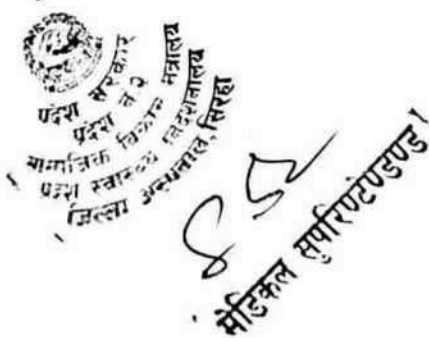 प्रदेश सरकार
प्रदेश नं २
सामाजिक विकास मन्त्रालय
प्रदेश स्वास्थ्य निर्देशनालय
जिल्ला अस्पताल, सिरहा
मेडिकल सुपरिण्टेण्डेण्ड